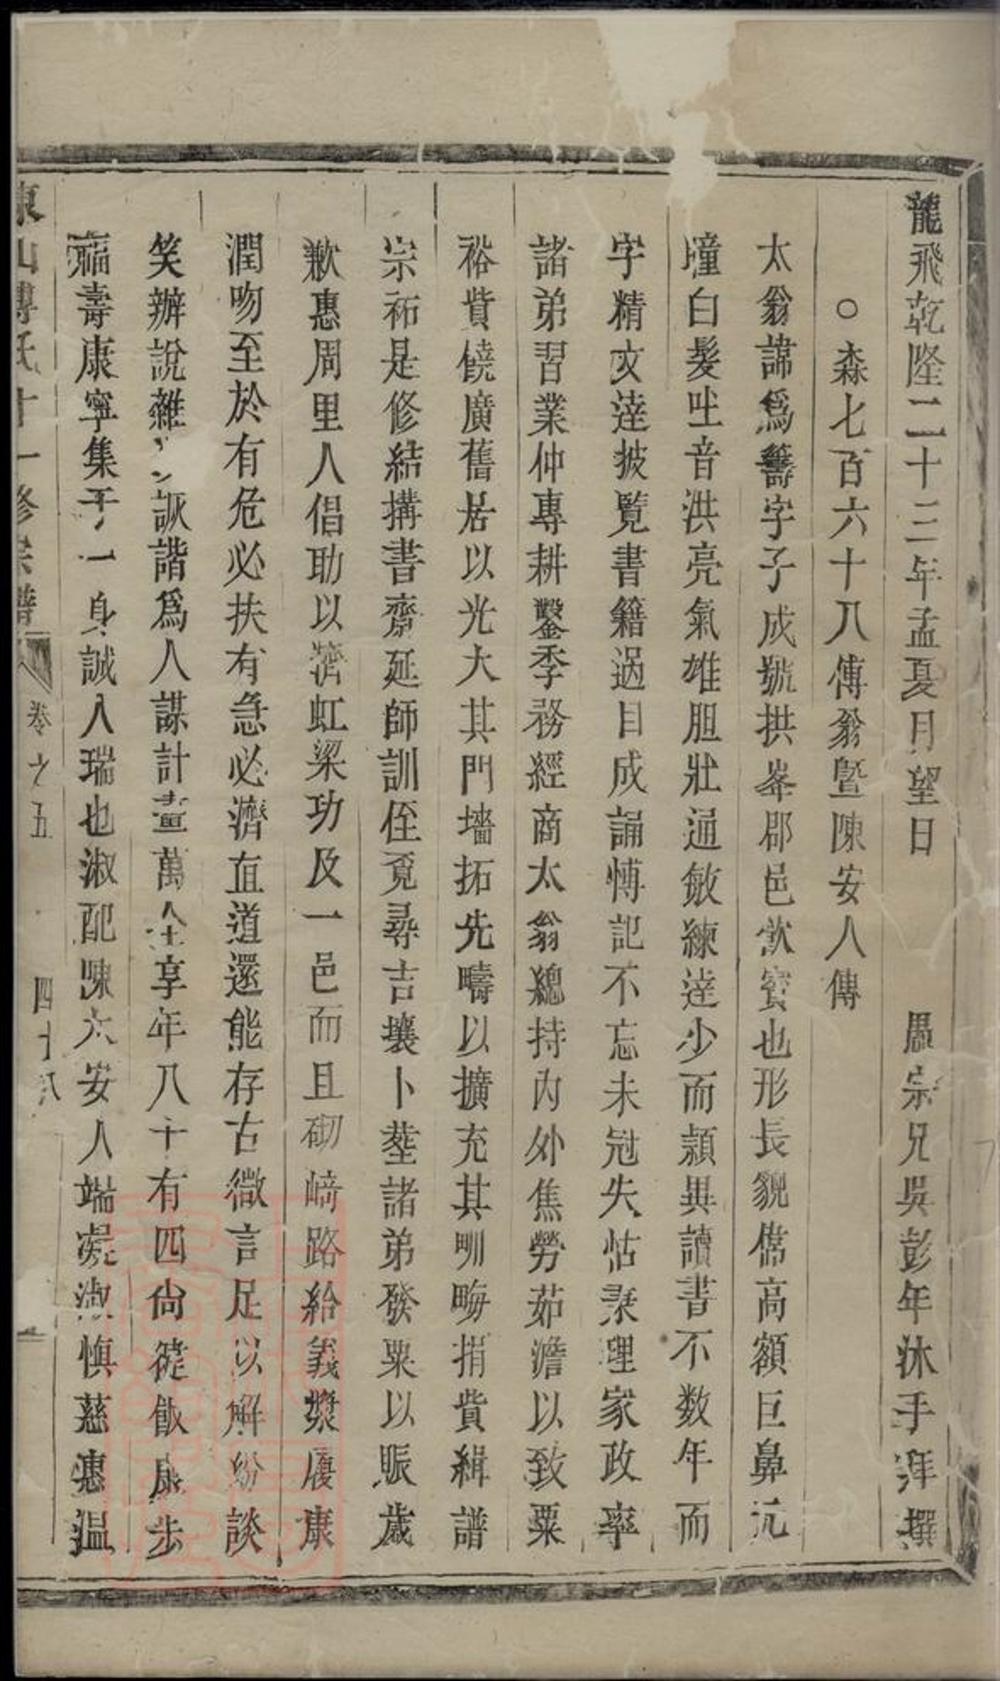 龍飛乾隆二十三年孟夏月望日　愚宗兄吳彭年沐手拜撰
○森七百六十八傳翁暨陳安人傳
太翁諱爲籌字子成號拱峯郡邑飲賓也形長貌儁高額巨鼻元
瞳白髮吐音洪亮氣雄胆壯通敏練達少而穎異讀書不数年而
字精文達披覽書籍過目成誦愽記不忘未冠失怙隸理家政率
諸弟習業仲專耕鑿季務經商太翁總持內外焦勞茹澹以致粟
裕貲饒廣舊居以光大其門墻拓先疇以擴充其甽畮捐貲緝譜
宗祏是修結搆書齋延師訓侄覔尋吉壤卜塟諸弟發粟以賑歲
歉惠周里人倡助以濟虹梁功及一邑而且砌﨑路給義漿屨康
潤吻至於有危必扶有急必濟直道還能存古微言足以解紛談
笑辦說雜以詼諧爲人謀計畫萬全享年八十有四尙徤飯康步
福壽康寧集于一身誠人瑞也淑配陳太安人端處淑慎慈惠溫
東山傅氏十一修宗譜　卷之五　四十八